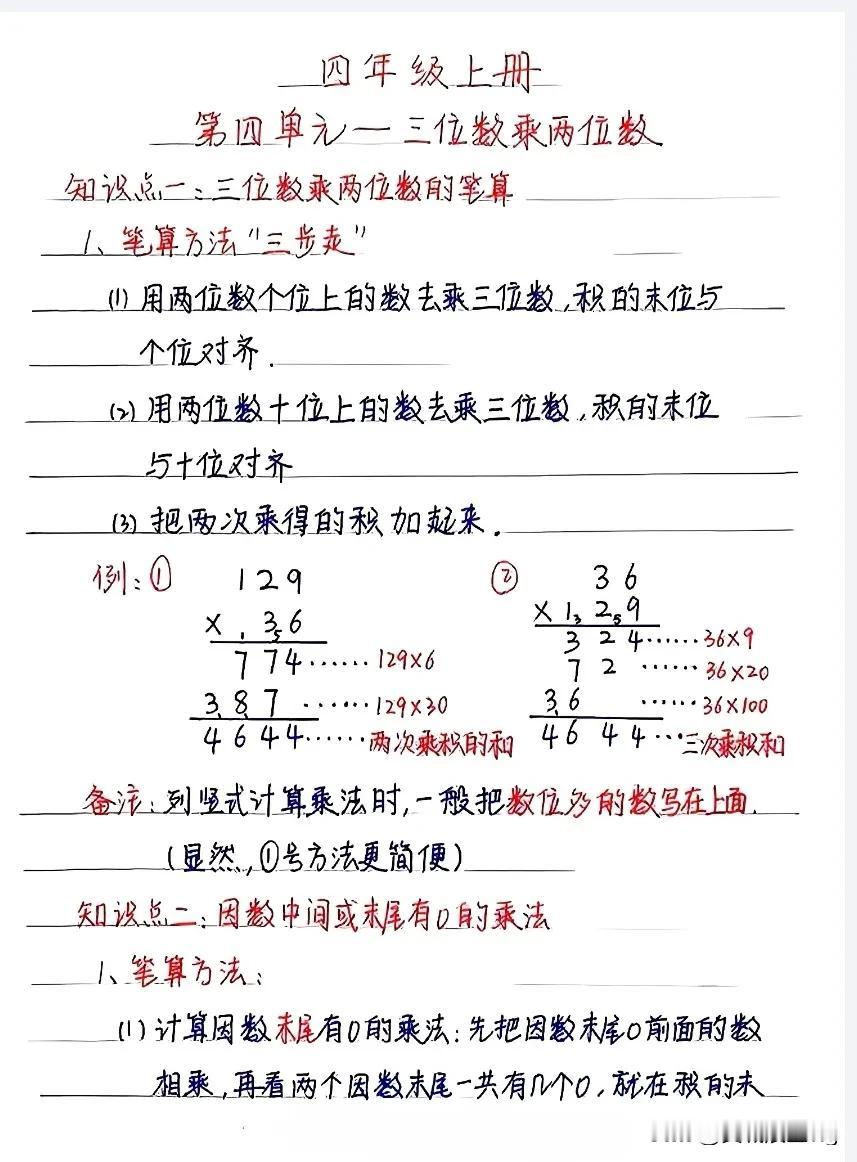 四年级上册
第四单元一三位数乘两位数
知识点一:三位数乘两位数的笔算
1、笔算方法“三步走”
(1) 用两位数个位上的数去乘三位数,积的末位与
个位对齐.
(2) 用两位数十位上的数去乘三位数,积的末位
与十位对齐
(3) 把两次乘得的积加起来.
例:① 129
× 36
774……129×6
387 ……129×30
4644……两次乘积的和
② 36
×129
324……36×9
72 ……36×20
36 ……36×100
4644…三次乘积和
备注:列竖式计算乘法时,一般把数位多的数写在上面.
(显然,①号方法更简便)
知识点二:因数中间或末尾有0的乘法
1、笔算方法:
(1)计算因数末尾有0的乘法:先把因数末尾0前面的数
相乘,再看两个因数末尾一共有几个0,就在积的末